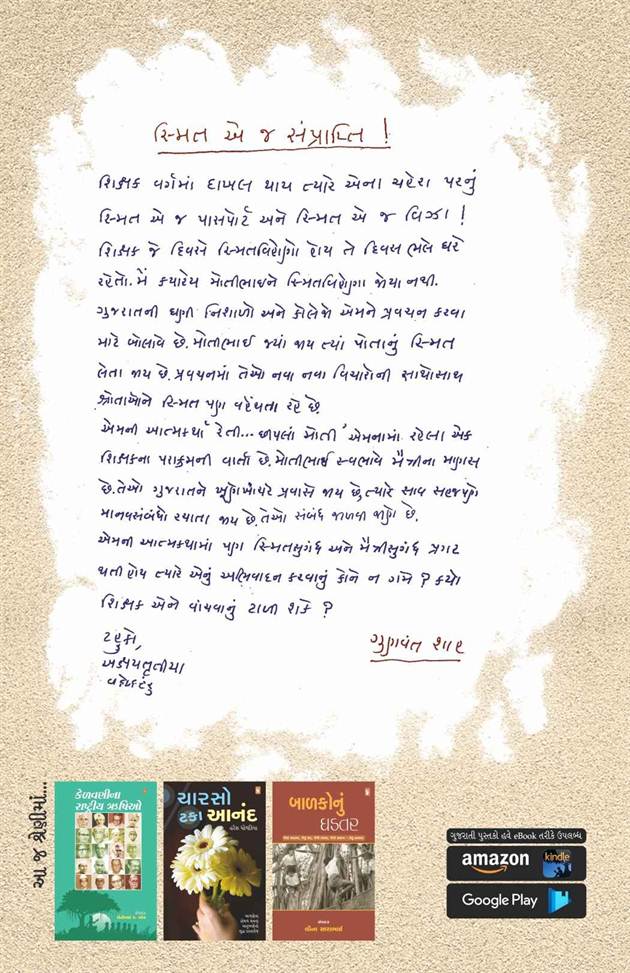 સ્મિત એ જ સંપ્રાપ્તિ !
શિક્ષક વર્ગમાં દાખલ થાય ત્યારે એના ચહેરા પરનું
સ્મિત એ જ પાસપોર્ટ અને સ્મિત એ જ વિઝા !
શિક્ષક જે દિવસે સ્મિતવિહોણો હોય તે દિવસ ભલે ઘરે
રહેતો. મેં ક્યારેય મોતીભાઇને સ્મિતવિહોણા જોયા નથી.
ગુજરાતની ઘણી નિશાળો અને કોલેજો એમને પ્રવચન કરવા
માટે બોલાવે છે. મોતીભાઈ જ્યાં જાય ત્યાં પોતાનું સ્મિત
લેતા જાય છે. પ્રવચનમાં તેઓ નવા નવા વિચારોની સાથોસાથ
શ્રોતાઓને સ્મિત પણ વહેંચતા રહે છે
એમની આત્મકથા 'રેતી... છીપલાં મોતી' એમનામાં રહેલા એક
શિક્ષકના પરાક્રમની વાર્તા છે. મોતીભાઈ સ્વભાવે મૈત્રીના માણસ
છે. તેઓ ગુજરાતને ખૂણેખાંચરે પ્રવાસે જાય છે, ત્યારે સાવ સહજપણે
માનવસંબંધો રચાતા જાય છે. તેઓ સંબંધ જાળવી જાણે છે.
એમની આત્મકથામાં પણ સ્મિતસુગંધ અને મૈત્રીસુગંધ પ્રગટ
થતી હોય ત્યારે એનું અભિવાદન કરવાનું કોને ન ગમે ? કયો
શિક્ષક એને વાંચવાનું ટાળી શકે ?
ટહુકો,
ગુણવંત શાહ
અક્ષયતૃતીયા
વડોદરા
આ જ શ્રેણીમાં...
કેળવણીના
રાષ્ટ્રીય ઋષિઓ
ચારસો
ટકા આનંદ
બાળકોનું
ઘડતર
ગુજરાતી પુસ્તકો હવે eBook તરીકે ઉપલબ્ધ
amazon kindle
Google Play